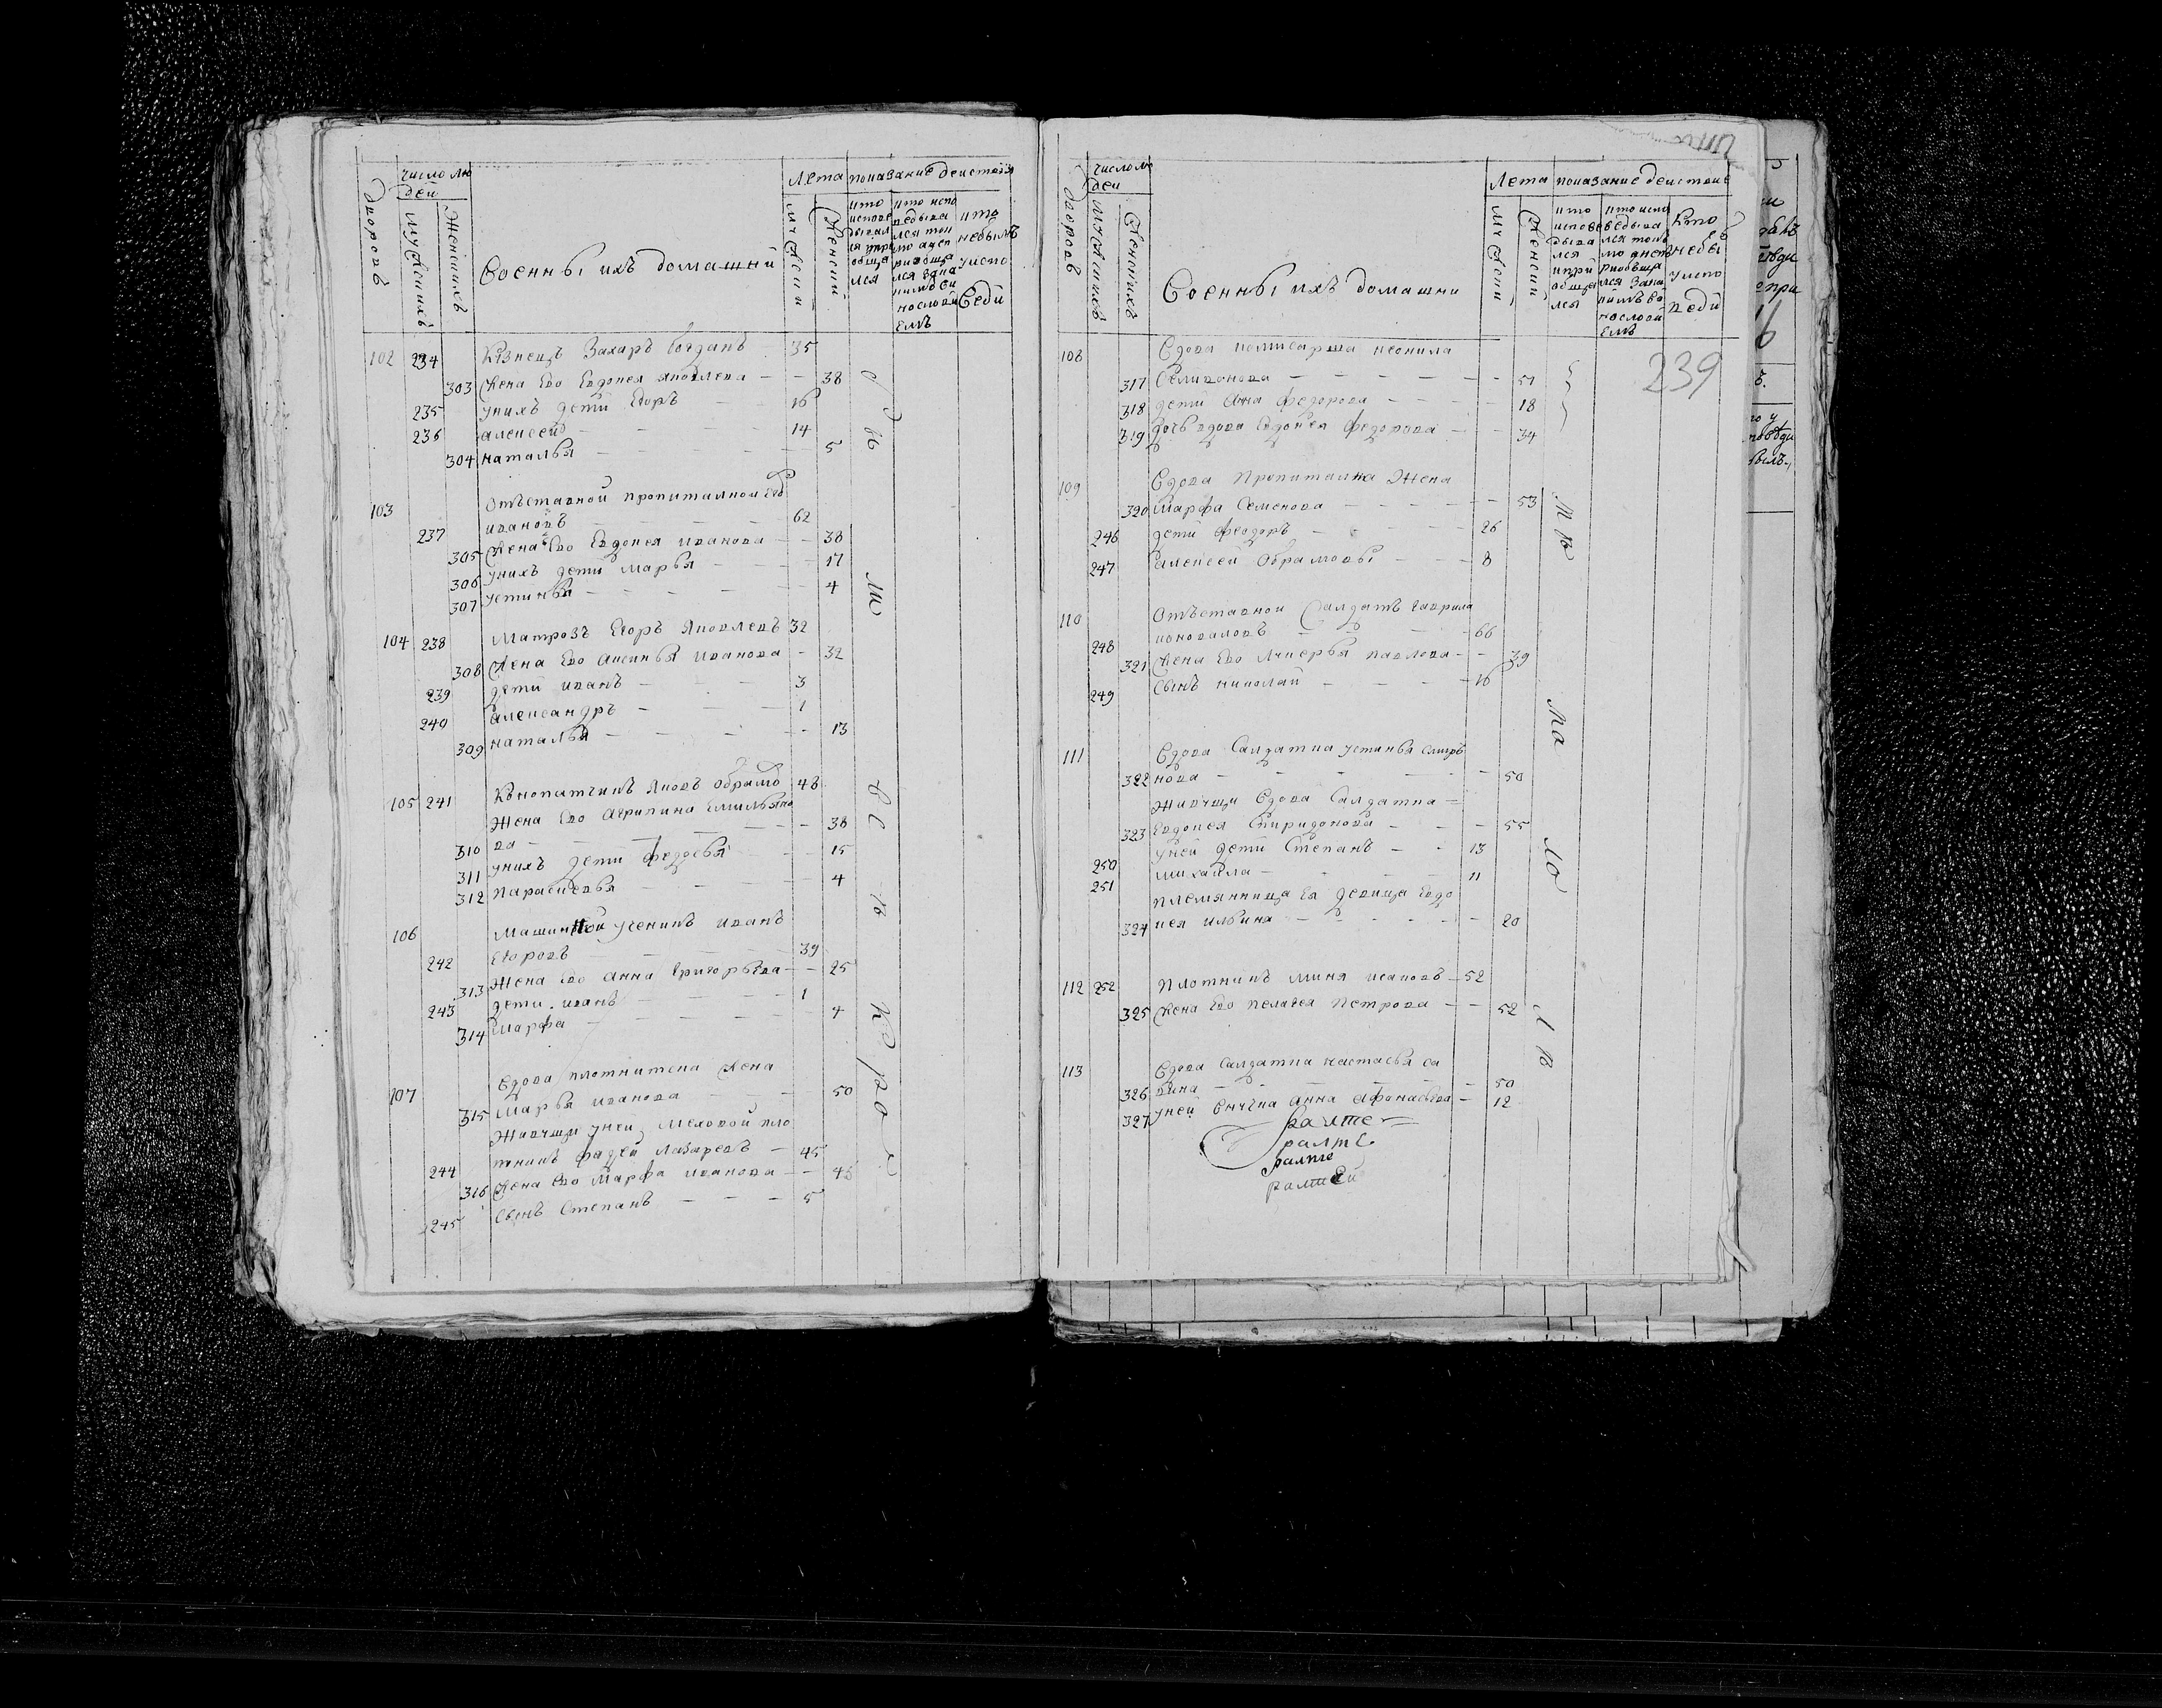 дворовъ
число лю
дей
мужескихъ
женскихъ
Военны ихъ домашни
Лета
мужески
женски
показание действа
кто
испове
дывал
ся при
обща
лся
кто испо
ведыва
лся
кто
небылъ
уиспо
веди
102 234 Кузнецъ Захаръ Богданъ 35
303 жена ево Евдокея Яковлева 38
235 у нихъ дети Егоръ 16
236 алексей 14
304 наталья 5
103 Отъставной пропиталной
237 ивановъ 62
305 жена ево Евдокея иванова 38
306 у нихъ дети марья 17
307 устинья 4
104 238 Матрозъ Егоръ Яковлевъ 32
308 жена ево аксинья иванова 32
239 дети иванъ 3
240 александръ 1
309 наталья 13
105 241 Конопатчикъ Яковъ обрамо 48
жена ево агрипина емильяно
310 ва 38
311 у нихъ дети федосья 15
312 парасковья 4
106 Машинной ученикъ иванъ
242 егоровъ 39
313 жена ево анна григорьева 25
243 дети иванъ 1
314 марфа 4
107 вдова плотничена жена
315 марья иванова 50
живущи у ней меховой пло
244 тникъ фадей лазаревъ 45
316 жена ево марфа иванова 45
245 сынъ степанъ 5
дворовъ
число лю
дей
мужескихъ
женскихъ
Военны ихъ домашни
Лета
мужески
женски
показание действе
кто
испове
дыва
лся
и при
обща
лся
кто испо
ведыва
лся
кто
небы
уиспо
веди
239
108 вдова неонила
317 селиванова 51
318 дети анна федорова 18
319 дочь вдова евдокея федорова 34
109 вдова пропитална жена
320 марфа семенова 53
246 дети феодоръ 26
247 алексей обрамовы 8
110 отъставной салдатъ гаврила
248 коноваловъ 66
321 жена ево лукерья павлова 39
249 сынъ николай 16
111 вдова салдатка устинья
322 нова 50
живущи вдова салдатка
323 евдокея спиридонова 55
у ней дети степанъ 13
250
251 михайла 11
племянница ея девица евдо
324 кея ильина 20
112 252 плотникъ миня исаковъ 52
325 жена ево пелагея петрова 52
113 вдова салдатка настасья са
326 вина 50
327 у ней внучка анна афонасьева 12